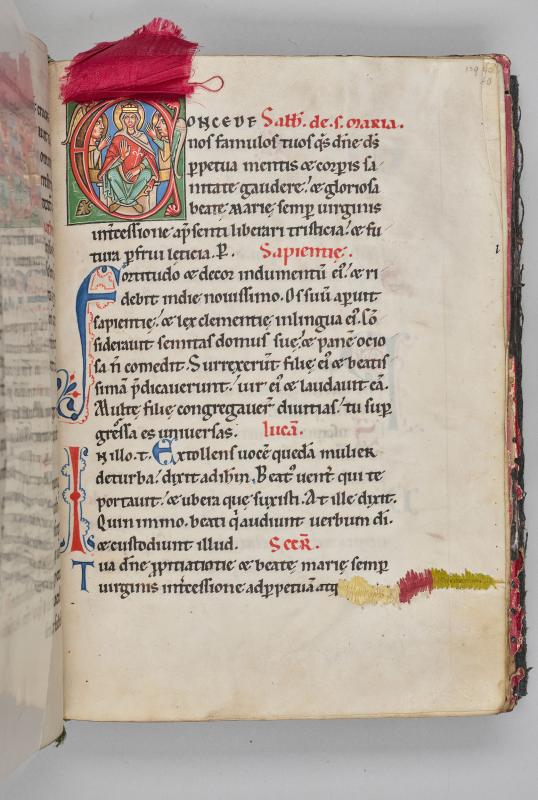 CONCEDE Sabb. de. s. maria.
nos famulos tuos q̄s dn̄e ds̄
ꝑpetua mentis & corꝑis sa
nitate gaudere. & gloriosa
beatę Marię semꝑ uirginis
int̄cessione ap̄senti liberari tristicia. & fu
tura ꝑfrui leticia. P. Sapientię.
Fortitudo & decor indumentū ei᷒. & ri
debit indie nouissimo. Os suū aꝑuit
sapientię. & lex clementię inlingua ei᷒. Cō
siderauit semitas domus suę. & panē ocio
sa n̄ comedit. Surrexer̄t filię ei᷒ & beatis
simā p̄dicauerunt. uir ei᷒ & laudauit eā.
Multę filię congregauer̄ diuitias. tu suꝑ
gressa es uniuersas. Lucā.
IN illo. t. Extollens uocē quędā mulier
deturba. dixit adihm̄. Beat᷒ uent̄ qui te
portauit. & ubera que suxisti. At ille dixit.
Quin immo. beati q̄ audiunt uerbum di̅.
& custodiunt illud. Secr̄.
Tua dn̄e ꝓpitiatione & beatę marię semꝑ
uirginis int̄cessione adꝑpetuā atq